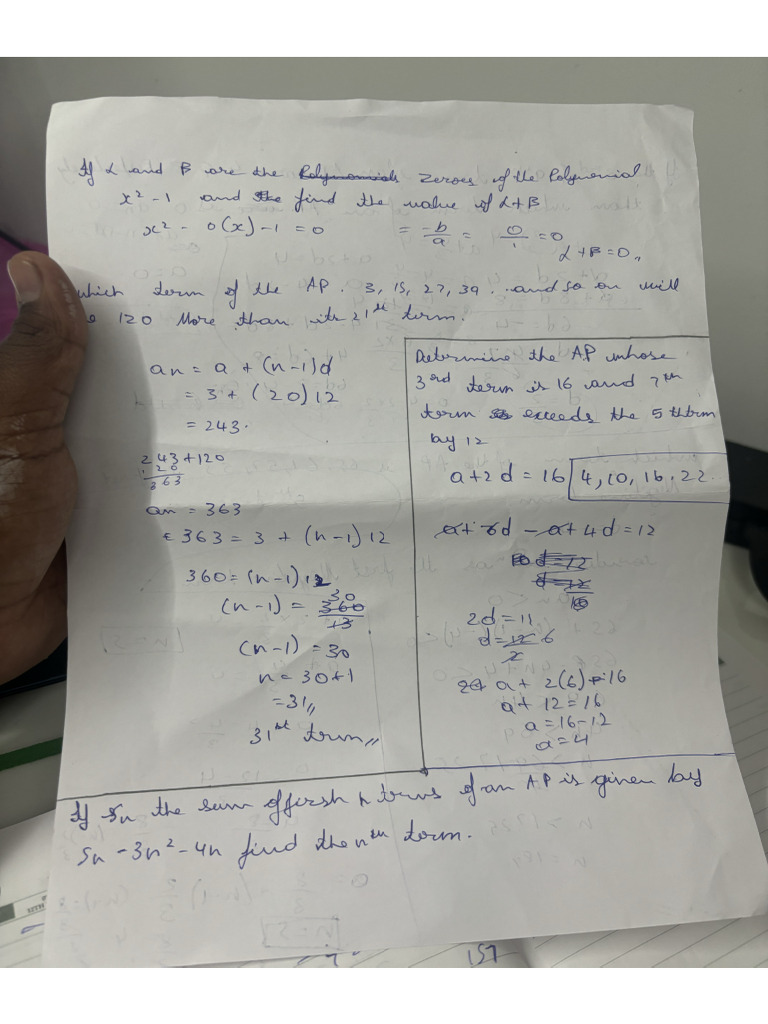 If α and β are the Polynomials zeroes of the Polynomial
x² - 1 and the find the value of α+β
x² - 0(x) - 1 = 0 = -b/a = 0/1 = 0
α + β = 0,,
which term of the AP. 3, 15, 27, 39 .. and so on will
120 More than its 21st term.
an = a + (n-1)d
= 3 + (20)12
= 243.
243+120
120
363
an = 363
363 = 3 + (n-1)12
360 = (n-1)12
(n-1) = 30
360
12
(n-1) = 30
n = 30+1
= 31,,
31st term,,
Determine the AP whose
3rd term is 16 and 7th
term exceeds the 5 thtrm
by 12
a+2d = 16 4, 10, 16, 22.
a+6d - a+4d = 12
d = 12
d = 12
2d = 11
d = 12 6
2
a + 2(6) = 16
a+ 12 = 16
a = 16-12
a = 4
If Sn the sum of firsh n terms of an AP is given by
Sn -3n²-4n find the nth term.
n=5
157